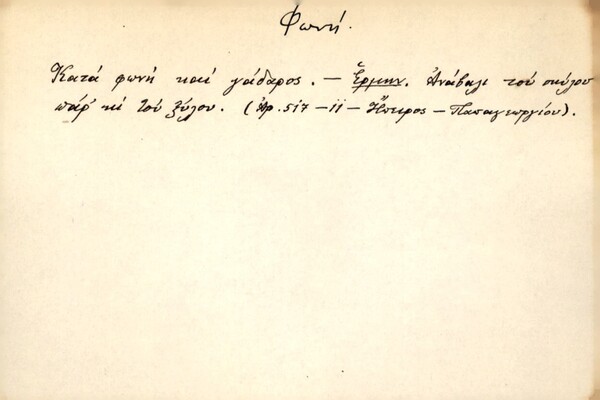 Φωνή.
Κατά φωνή καί γάδαρος. — Ἑρμην. Ἀνάβαλι τού σκύλου
πάρ' κί τού ξύλου. (ἀρ. 517 — ii — Ἤπειρος — Παπαγεωργίου).